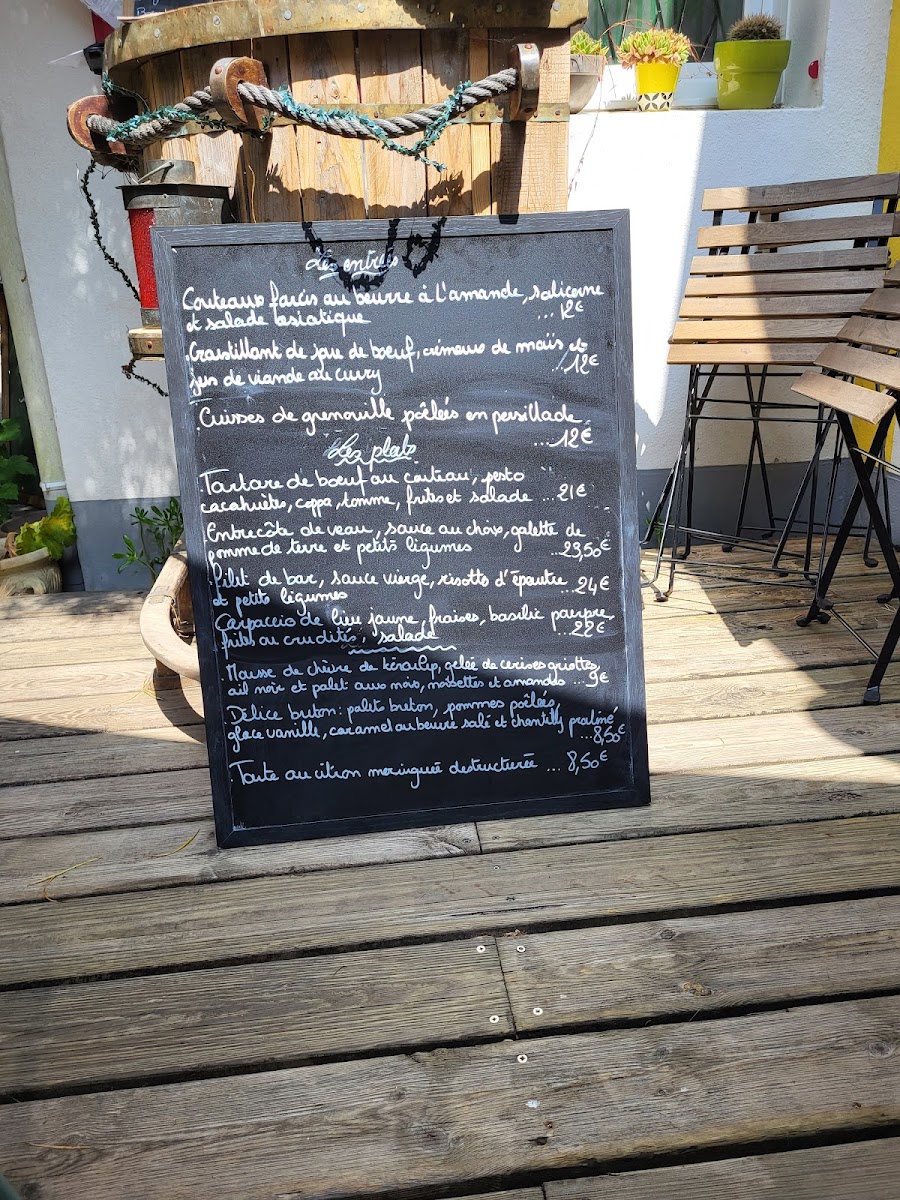 Les entrées
Couteaux farcis au beurre à l'amande, salicorne
et salade asiatique ... 12€
Croustillant de joue de boeuf, crémeux de maïs et
jus de viande au curry ... 12€
Cuisses de grenouille poêlées en persillade
... 12€
Les plats
Tartare de boeuf au couteau, pesto
cacahuètes, coppa, tomme, frites et salade ... 21€
Entrecôte de veau, sauce au choix, galette de
pomme de terre et petits légumes ... 23,50€
Filet de bar, sauce vierge, risotto d'épeautre ... 24€
et petits légumes
Carpaccio de lieu jaune, fraises, basilic pourpre,
frites ou crudités, salade ... 22€
Mousse de chèvre de gelée de cerises griottes,
ail noir et palet aux noix, noisettes et amandes ... 9€
Délice breton: palets breton, pommes poêlées,
glace vanille, caramel au beurre salé et chantilly praliné
... 8,50€
Tarte au citron meringuée destructurée ... 8,50€